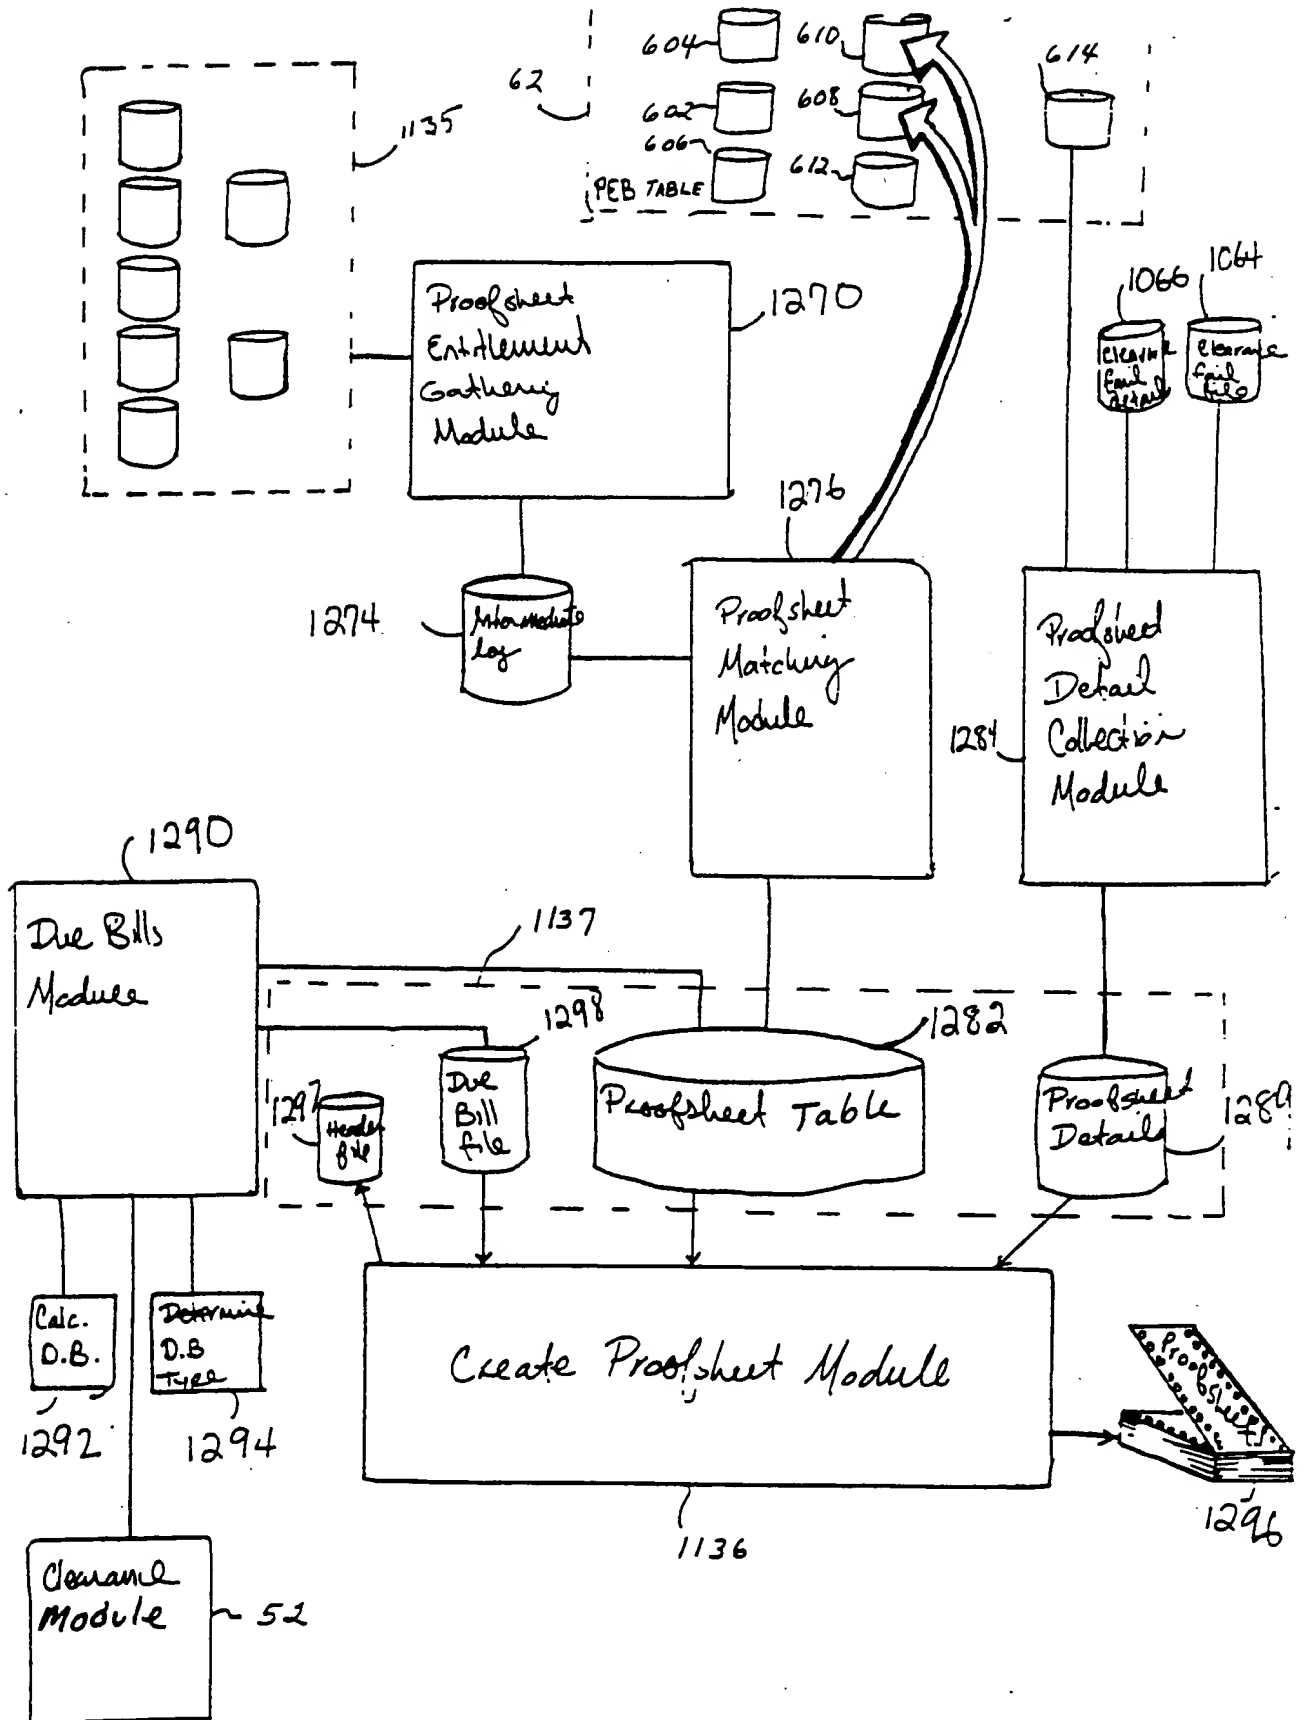 604
610
614
62
602
608
1135
606
612
PEB TABLE
1066
1064
Proofsheet
Entitlement
Gathering
Module
1270
Clearance
fail
detail
Clearance
fail
file
1276
1274
Intermediate
log
Proofsheet
Matching
Module
Proofsheet
Detail
Collection
Module
1284
1290
Due Bills
Module
1137
1298
1282
1297
Header
file
Due
Bill
file
Proofsheet Table
Proofsheet
Details
Calc.
D.B.
Determine
D.B
Type
Create Proofsheet Module
Proofsheets
1292
1294
1296
1136
Clearance
Module
52